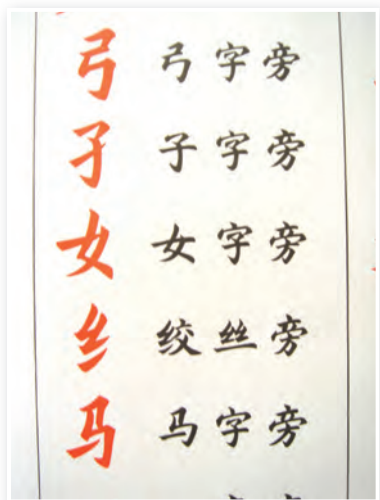 弓 弓字旁
孑 子字旁
女 女字旁
纟 绞丝旁
马 马字旁